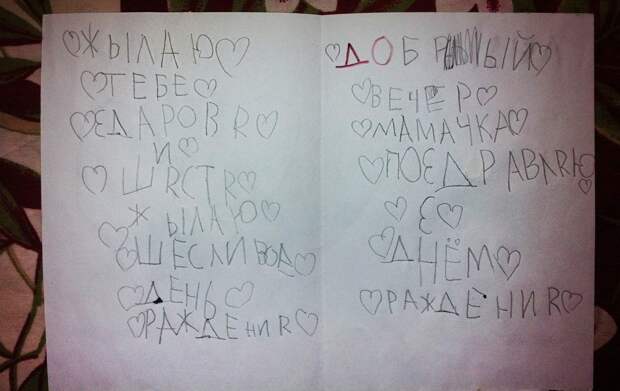 ЖЫЛАЮ
ТЕБЕ
ЗДАРОВЯ
И
ШЯСТЯ
ЖЫЛАЮ
ШЕСЛИВОВ
ДЕНЬ
РАЖДЕНИЯ
ДОБРЫЙ
ВЕЧЕР
МАМАЧКА
ПОЗДРАВЛЯЮ
З
ДНЁМ
РАЖДЕНИЯ